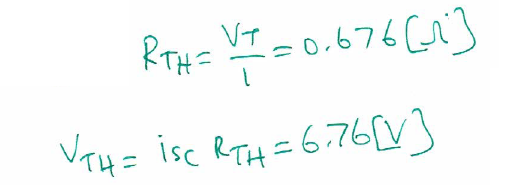 RTH = VT/1 = 0.676[Ω]
VTH = isc RTH = 6.76[V]